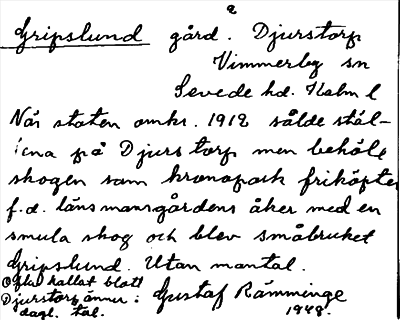 a
Gripslund gård. Djurstorp
Vimmerby sn
Sevede hd. Kalm l
När staten omkr. 1912 sålde stäl-
lena på Djurstorp men behöll
skogen som kronopark friköptes
f.d. länsmansgårdens åker med en
smula skog och blev småbruket
Gripslund. Utan mantal.
Ofta kallat blott
Djurstorp ännu i
dagl. tal.
Gustaf Rämminge
1948.